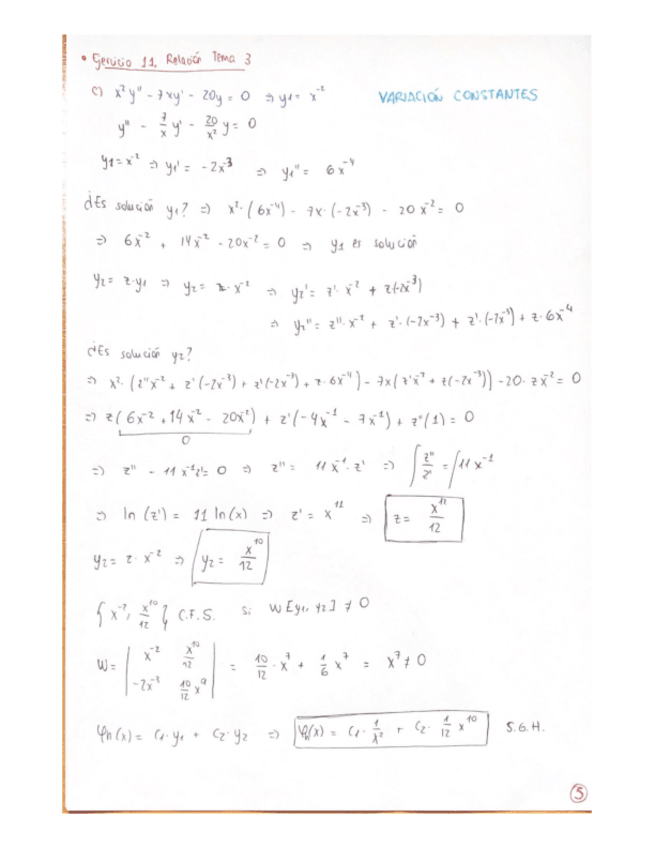 • Ejercicio 11. Relación Tema 3
c) x²y'' - 7xy' - 20y = 0 ⇒ y1 = x⁻²
VARIACIÓN CONSTANTES
y'' - 7/x y' - 20/x² y = 0
y1 = x⁻² ⇒ y1' = -2x⁻³ ⇒ y1'' = 6x⁻⁴
¿Es solución y1? ⇒ x²·(6x⁻⁴) - 7x·(-2x⁻³) - 20x⁻² = 0
⇒ 6x⁻² + 14x⁻² - 20x⁻² = 0 ⇒ y1 es solución
y2 = z·y1 ⇒ y2 = z·x⁻² ⇒ y2' = z'·x⁻² + z(-2x⁻³)
⇒ y2'' = z''·x⁻² + z'·(-2x⁻³) + z'·(-2x⁻³) + z·6x⁻⁴
¿Es solución y2?
⇒ x²·(z''x⁻² + z'(-2x⁻³) + z'(-2x⁻³) + z·6x⁻⁴) - 7x(z'x⁻² + z(-2x⁻³)) - 20·zx⁻² = 0
⇒ z(6x⁻² + 14x⁻² - 20x⁻²) + z'(-4x⁻¹ - 7x⁻¹) + z''(1) = 0
0
⇒ z'' - 11x⁻¹z' = 0 ⇒ z'' = 11x⁻¹·z' ⇒ ∫ z''/z' = ∫ 11x⁻¹
⇒ ln(z') = 11 ln(x) ⇒ z' = x¹¹ ⇒ z = x¹²/12
y2 = z·x⁻² ⇒ y2 = x¹⁰/12
{x⁻², x¹⁰/12} C.F.S. si W[y1, y2] ≠ 0
W = | x⁻² x¹⁰/12 ; -2x⁻³ 10/12 x⁹ | = 10/12·x⁷ + 1/6 x⁷ = x⁷ ≠ 0
φh(x) = C1·y1 + C2·y2 ⇒ φh(x) = C1·1/x² + C2·1/12 x¹⁰ S.G.H.
5